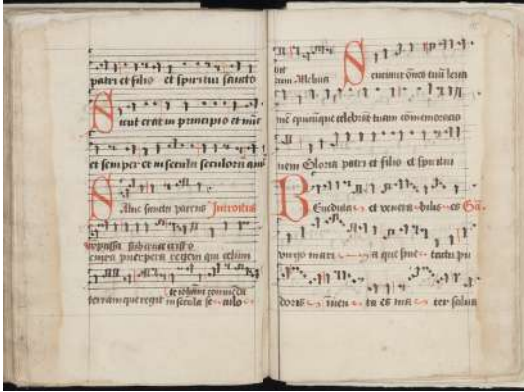 patri et filio et spiritui sancto
Sicut erat in principio et nūc
et semper et in secula seculorū amē
Salve sancta parens Introitus
enixa puerpera regem qui celum
terramque regit in secula se culo
Sentiant oēs tuū leva
mē quicunque celebrāt tuam cōmemoracio
nem Gloria patri et filio et spiritui
Benedicta et venera bilis es Gā.
virgo mari a que sine tactu pu
doris inven ta es ma ter salva